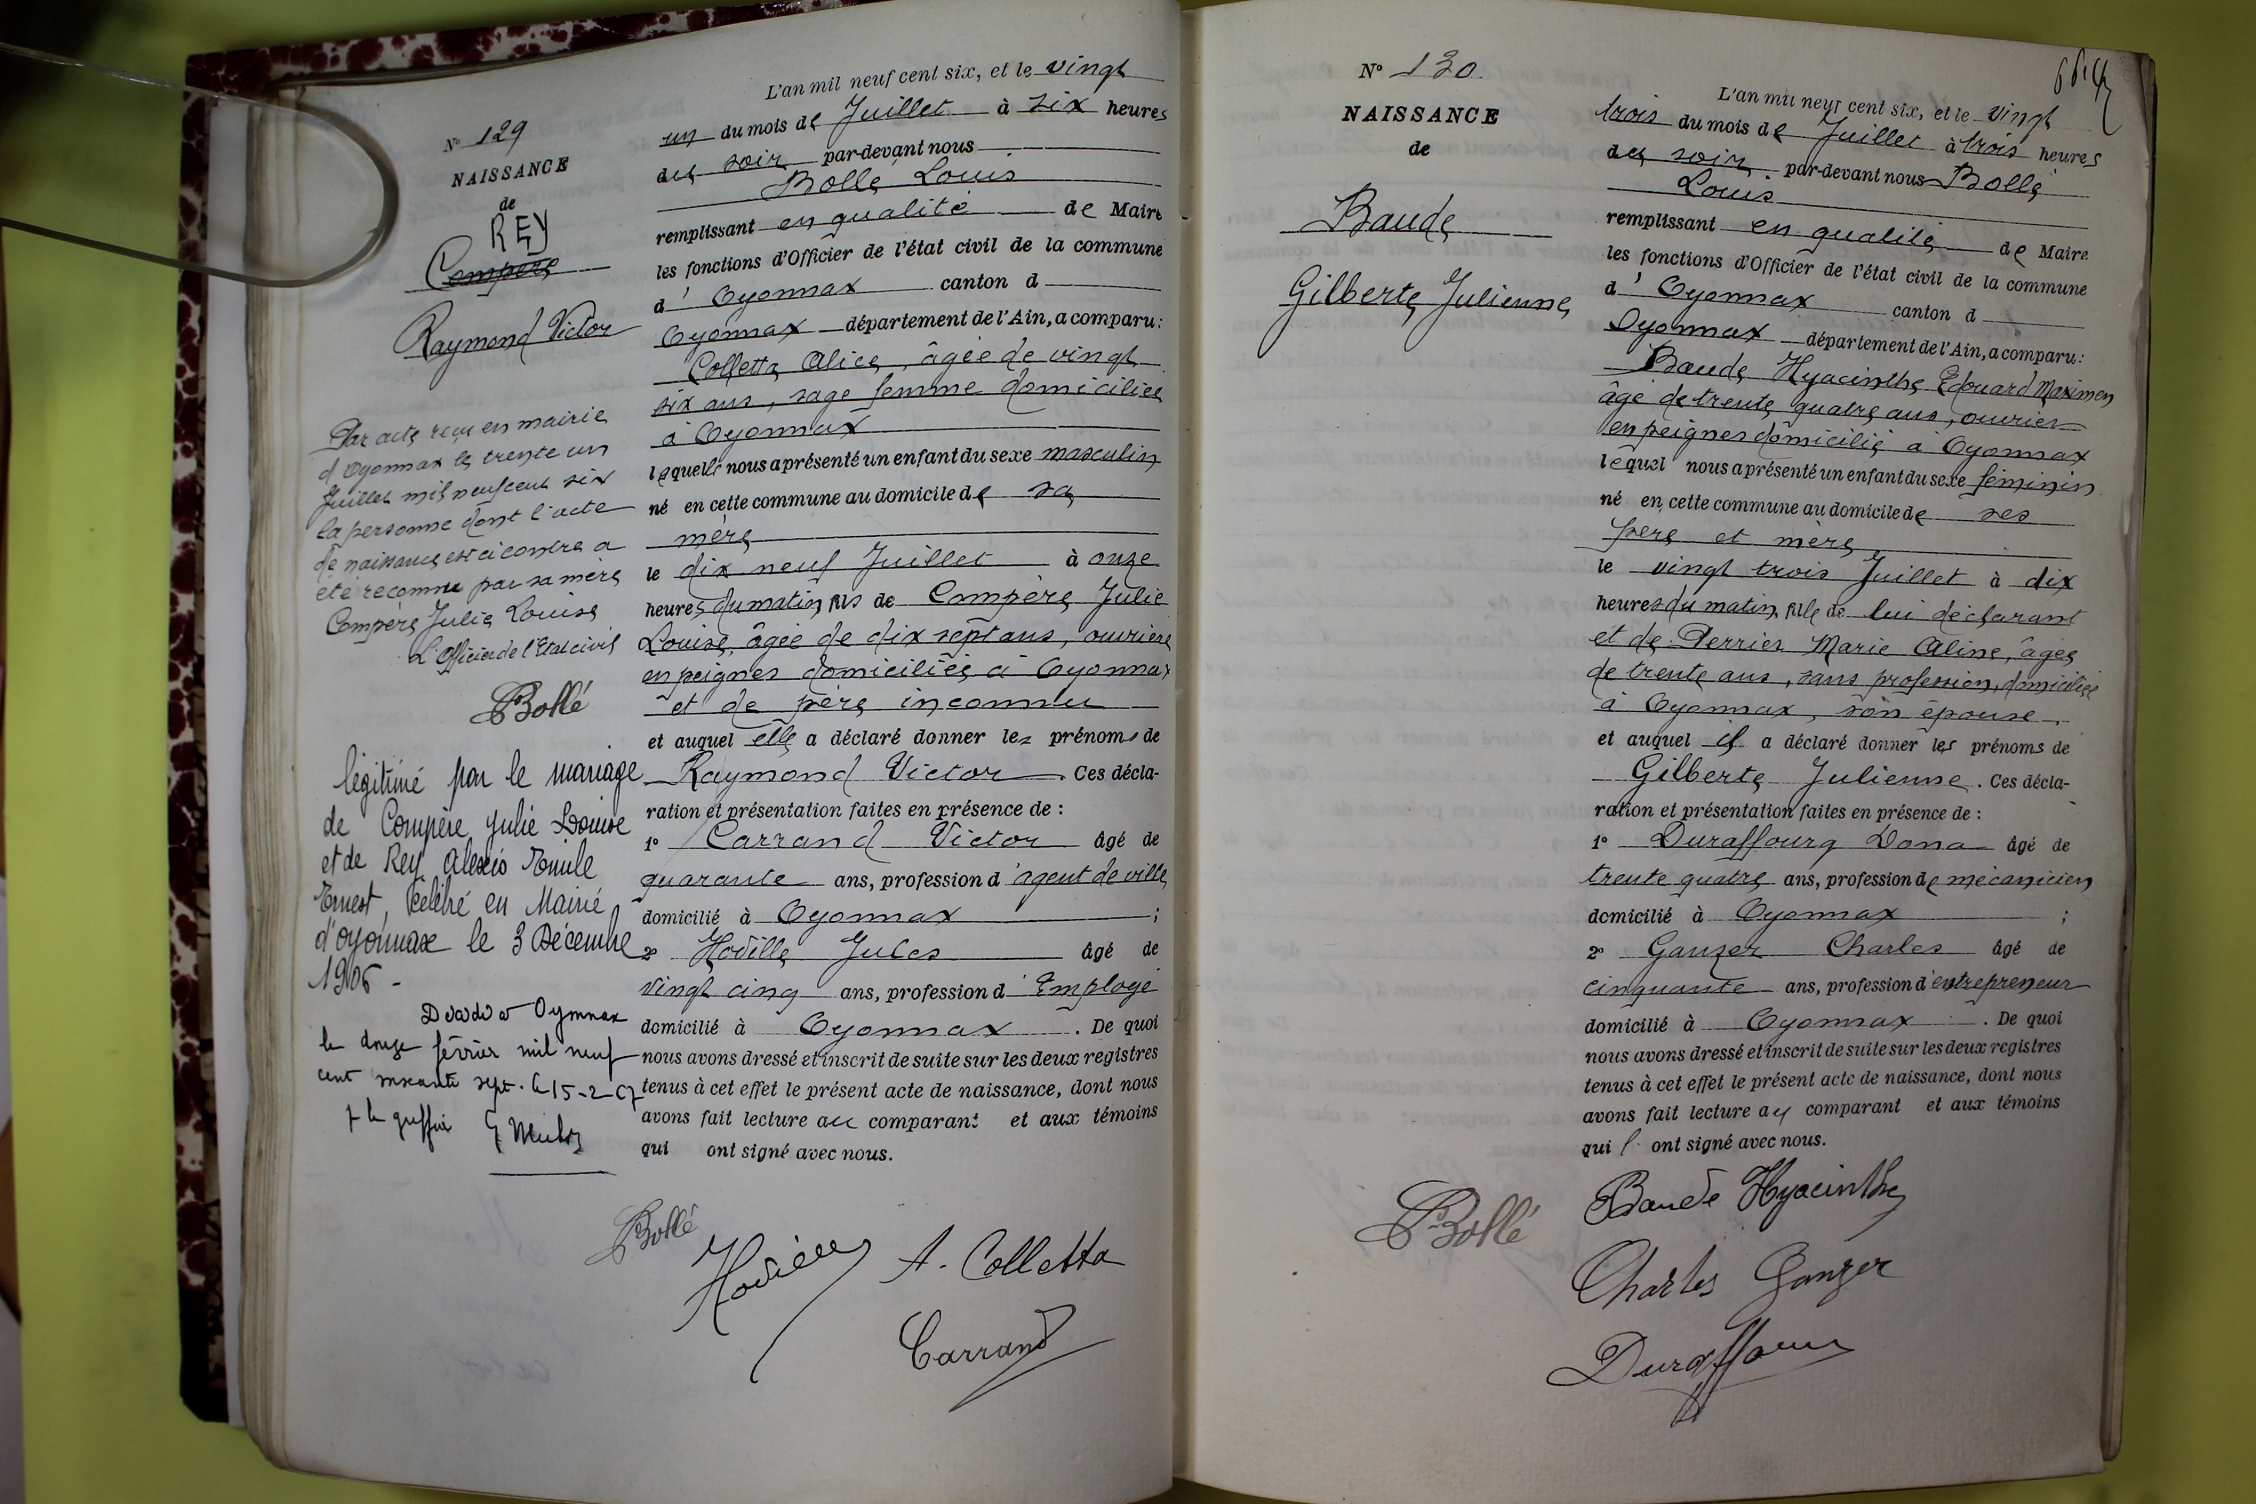 N° 129
NAISSANCE
de
REY
Compère
Raymond Victor
Par acte reçu en mairie
d'Oyonnax le trente un
Juillet mil neuf cent six
la personne dont l'acte
de naissance est ci contre a
été reconnu par sa mère
Compère Julie Louise
L'Officier de l'Etat civil
Bollé
légitimé par le mariage
de Compère Julie Louise
et de Rey Alexis Emile
Ernest, célébré en Mairie
d'oyonnax le 3 Décembre
1906 -
Décédé à Oyonnax
le douze février mil neuf
cent soixante sept. le 15-2-67
le greffier
L'an mil neuf cent six, et le vingt
un du mois de Juillet à six heures
du soir par-devant nous
Bollé Louis
remplissant en qualité de Maire
les fonctions d'Officier de l'état civil de la commune
d' Oyonnax canton d
Oyonnax département de l'Ain, a comparu:
Colletta Alice, âgée de vingt
six ans, sage femme domiciliée
à Oyonnax
laquelle nous a présenté un enfant du sexe masculin
né en cette commune au domicile de sa
mère
le dix neuf Juillet à onze
heures du matin, fils de Compère Julie
Louise, âgée de dix sept ans, ouvrière
en peignes domiciliée à Oyonnax
et de père inconnu
et auquel elle a déclaré donner les prénoms de
Raymond Victor. Ces décla-
ration et présentation faites en présence de :
1° Carrand Victor âgé de
quarante ans, profession d'agent de ville
domicilié à Oyonnax ;
2° Hodille Jules âgé de
vingt cinq ans, profession d'Employé
domicilié à Oyonnax. De quoi
nous avons dressé et inscrit de suite sur les deux registres
tenus à cet effet le présent acte de naissance, dont nous
avons fait lecture au comparant et aux témoins
qui ont signé avec nous.
Bollé
Hodille A. Colletta
Carrand
N° 130
NAISSANCE
de
Baude
Gilberte Julienne
L'an mil neuf cent six, et le vingt
trois du mois de Juillet à trois heures
du soir par-devant nous Bollé
Louis
remplissant en qualité de Maire
les fonctions d'Officier de l'état civil de la commune
d' Oyonnax canton d
Oyonnax département de l'Ain, a comparu:
Baude Hyacinthe Edouard Maximen
âgé de trente quatre ans, ouvrier
en peignes domicilié à Oyonnax
lequel nous a présenté un enfant du sexe féminin
né en cette commune au domicile de ses
père et mère
le vingt trois Juillet à dix
heures du matin, fille de lui déclarant
et de Perrier Marie Aline, âgée
de trente ans, sans profession, domiciliée
à Oyonnax, son épouse
et auquel il a déclaré donner les prénoms de
Gilberte Julienne. Ces décla-
ration et présentation faites en présence de :
1° Duraffourg Dona âgé de
trente quatre ans, profession de mécanicien
domicilié à Oyonnax ;
2° Ganzer Charles âgé de
cinquante ans, profession d'entrepreneur
domicilié à Oyonnax. De quoi
nous avons dressé et inscrit de suite sur les deux registres
tenus à cet effet le présent acte de naissance, dont nous
avons fait lecture au comparant et aux témoins
qui l' ont signé avec nous.
Baude Hyacinthe
Bollé
Charles Ganzer
Duraffour